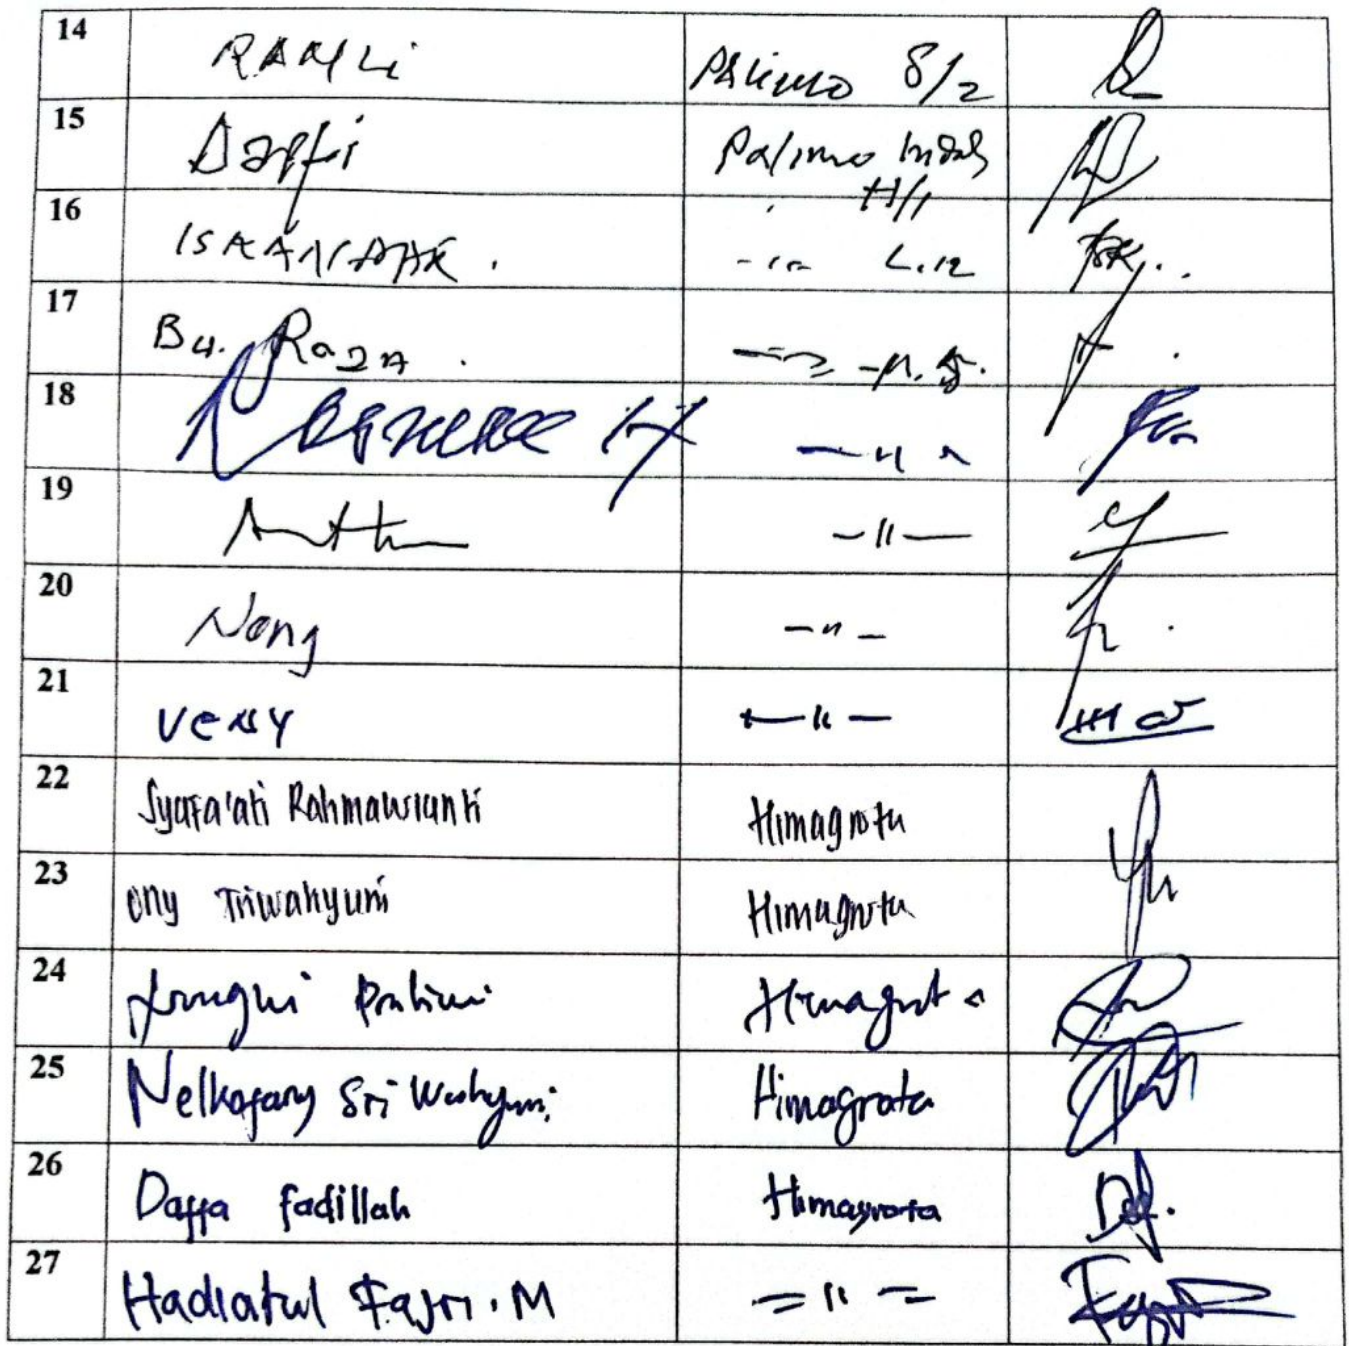 14 RAMLi Palimo 8/2
15 Daffi Palimo Indah H/1
16 ISKANDAR. -〃- L.12
17 Bu. Roza. -〃- M.5.
18 -〃-
19 -〃-
20 Nong -〃-
21 VeNY -〃-
22 Syafa'ati Rahmawianti Himagrota
23 Ony Triwahyuni Himagrota
24 Pratiwi Himagrota
25 Nelkafany Sri Wahyuni Himagrota
26 Daffa fadillah Himagrota
27 Hadiatul Fajri.M =〃=